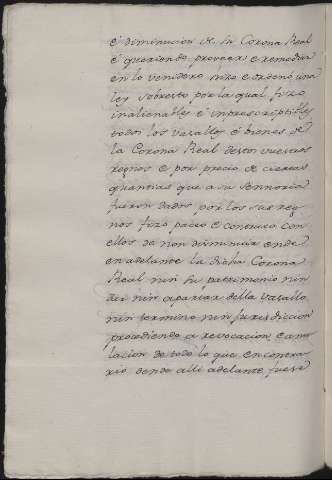 é diminucion de su Corona Real
é queriendo proveer e remediar
en lo venidero hizo e ordenó una
ley sobresto por la qual fizo
inalienables é inprescriptibles
todos los vasallos é bienes de
la Corona Real destos vuestros
regnos e por precio de ciertas
quantias que a su Sennoria
fueron dadas por los sus reg
nos fizo pacto é contrato con
ellos de non diminuir ende
en adelante la dicha Corona
Real nin su patrimonio nin
dar nin apartar della vasallos
nin termino nin jurisdiccion
procediendo a revocacion e anu
lacion de todo lo que en contra
rio dende alli adelante fuese